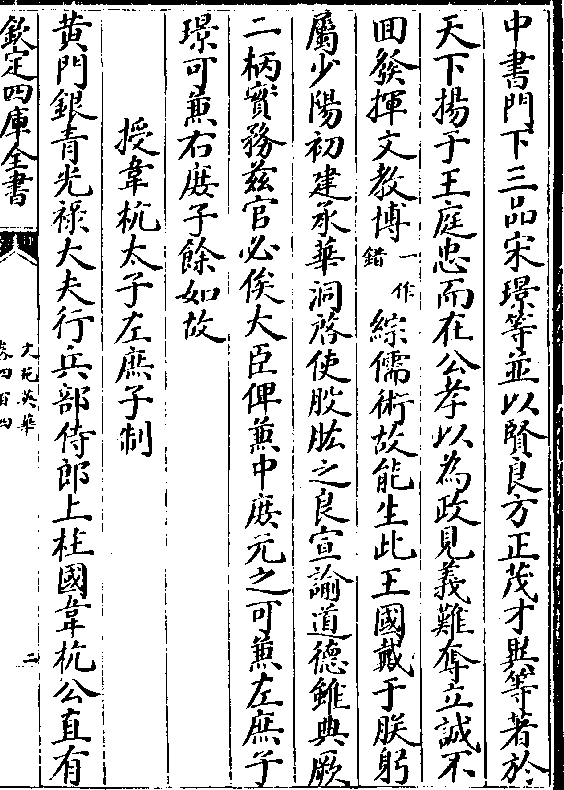 中書門下三品宋璟等並以賢良方正茂才異等著於
天下揚于王庭忠而在公孝以為政見義難奪立誠不
回發揮文教博一作錯綜儒術故能生此王國戴于朕躬
屬少陽初建承華洞啓使股肱之良宣諭道德雖典厥
二柄實務茲官必俟大臣俾兼中庶元之可兼左庶子
璟可兼右庶子餘如故
授韋杭太子左庶子制
黄門銀青光祿大夫行兵部侍郎上柱國韋杭公直有
欽定四庫全書
文苑英華
卷四百四
二